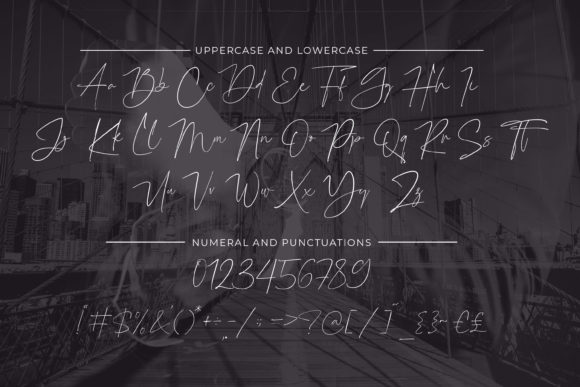 UPPERCASE AND LOWERCASE
Aa Bb Cc Dd Ee Ff Gg Hh Ii
Jj Kk Ll Mm Nn Oo Pp Qq Rr Ss Tt
Uu Vv Ww Xx Yy Zz
NUMERAL AND PUNCTUATIONS
0123456789
!"#$%&'()*+÷-/:;=>?@[/]~_{}~€£